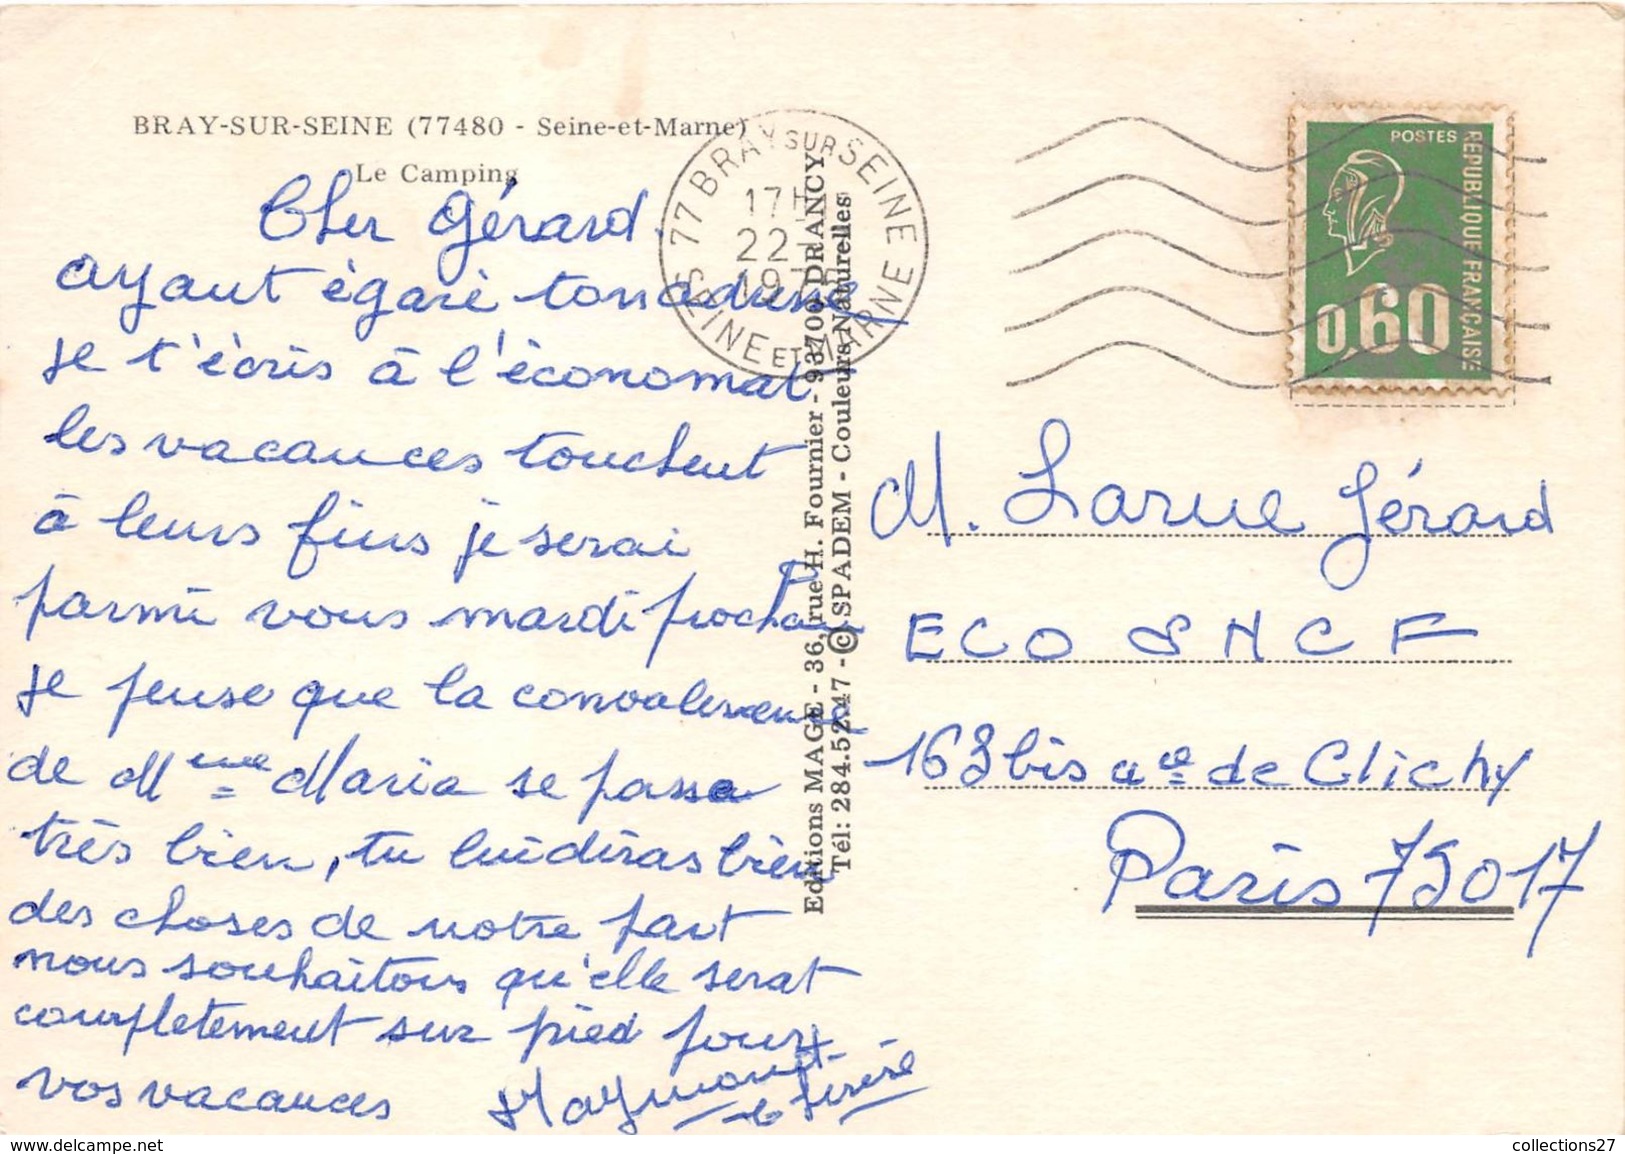 BRAY-SUR-SEINE (77480 - Seine-et-Marne)
Le Camping
Cher Gérard.
ayant égaré ton adresse
je t'écris à l'économat
les vacances touchent
à leurs fins je serai
parmi vous mardi prochain
je pense que la convalescence
de Mme Maria se passe
très bien, tu lui diras bien
des choses de notre part
nous souhaitons qu'elle serat
completement sur pied pour
vos vacances
Raymond
77 BRAY SUR SEINE
17H
22
SEINE ET MARNE
Editions MAGE - 36, rue H. Fournier - 93700 DRANCY
Tél: 284.52.47 - © SPADEM - Couleurs Naturelles
POSTES
REPUBLIQUE FRANÇAISE
0,60
M. Larue Gérard
ECO SNCF
163 bis ave de Clichy
Paris 75017
collections27
www.delcampe.net